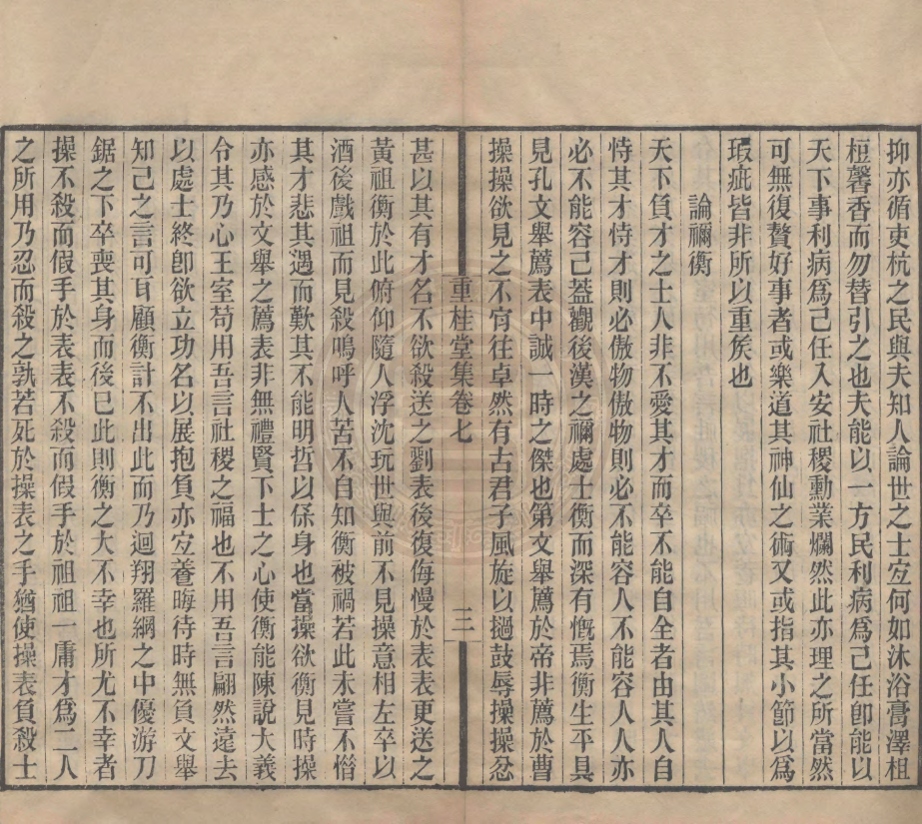 抑亦循吏杭之民與夫知人論世之士宐何如沐浴膏澤柤
梪馨香而勿替引之也夫能以一方民利病爲己任卽能以
天下事利病爲己任入安社稷勳業爛然此亦理之所當然
可無復贅好事者或樂道其神仙之術又或指其小節以爲
瑕疵皆非所以重矦也
論禰衡
天下負才之士人非不愛其才而卒不能自全者由其人自
恃其才恃才則必傲物傲物則必不能容人不能容人人亦
必不能容己葢觀後漢之禰處士衡而深有慨焉衡生平具
見孔文舉薦表中誠一時之傑也第文舉薦於帝非薦於曹
操操欲見之不肯往卓然有古君子風旋以撾鼓辱操操忿
重桂堂集卷七
二
甚以其有才名不欲殺送之劉表後復侮慢於表表更送之
黃祖衡於此俯仰隨人浮沈玩世與前不見操意相左卒以
酒後戲祖而見殺嗚呼人苦不自知衡被禍若此未嘗不惜
其才悲其遇而歎其不能明哲以保身也當操欲衡見時操
亦感於文舉之薦表非無禮賢下士之心使衡能陳說大義
令其乃心王室苟用吾言社稷之福也不用吾言翩然遠去
以處士終卽欲立功名以展抱負亦宐養晦待時無負文舉
知己之言可耳顧衡計不出此而乃迴翔羅網之中優游刀
鋸之下卒喪其身而後已此則衡之大不幸也所尤不幸者
操不殺而假手於表表不殺而假手於祖祖一庸才爲二人
之所用乃忍而殺之孰若死於操表之手猶使操表負殺士